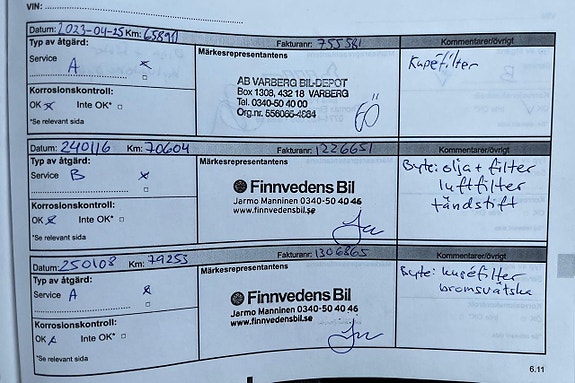 VIN:
Datum: 2023-04-25 Km: 65891 Fakturanr: 755581 Kommentarer/övrigt
Typ av åtgärd: Märkesrepresentantens
Service A x Kupéfilter
AB VARBERG BIL-DEPOT
Box 1308, 432 18 VARBERG
Korrosionskontroll: Tel. 0340-50 40 00
OK x Inte OK* Org.nr. 556065-4684
*Se relevant sida
Datum: 240116 Km: 70604 Fakturanr: 1226651 Kommentarer/övrigt
Typ av åtgärd: Märkesrepresentantens Byte: olja + filter
Service B x luftfilter
Finnvedens Bil tändstift
Korrosionskontroll: Jarmo Manninen 0340-50 40 46
OK x Inte OK* www.finnvedensbil.se
*Se relevant sida
Datum: 250108 Km: 79253 Fakturanr: 1306865 Kommentarer/övrigt
Typ av åtgärd: Märkesrepresentantens Byte: kupéfilter
Service A x bromsvätska
Finnvedens Bil
Korrosionskontroll: Jarmo Manninen 0340-50 40 46
OK x Inte OK* www.finnvedensbil.se
*Se relevant sida
6.11